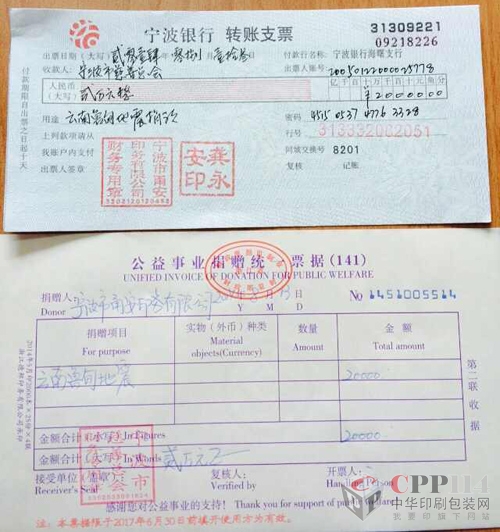 宁波银行 转账支票
31309221
09218226
出票日期(大写) 贰零壹肆 零捌 壹拾叁
付款行名称:宁波银行海曙支行
收款人:
出票人账号:
人民币(大写) 贰万元整
亿千百十万千百十元角分
¥2000000
用途 云南鲁甸地震捐款
密码 4515 0537 4776 3328
上列款项请从
行号: 313332082051
我账户内支付
同城交换号 8201
出票人签章
付款期限自出票之日起十天
宁波市甬安印务有限公司财务专用章
龚永安印
公益事业捐赠统一票据(141)
UNIFIED INVOICE OF DONATION FOR PUBLIC WELFARE
捐赠人:
Donor
Y M D
№ 1451005514
捐赠项目
For purpose
实物(外币)种类
Material objects(Currency)
数量
Amount
金额
Total amount
云南鲁甸地震
20000
金额合计(小写)In Figures
20000
金额合计(大写)In Words 贰万元
接受单位(盖章):
Receiver's Seal
复核人:
Verified by
开票人:
感谢您对公益事业的支持! Thank you for support of public
本票据限于2017年6月30日前填开使用方为有效。
第二联 收据
CPP114
中华印刷包装网